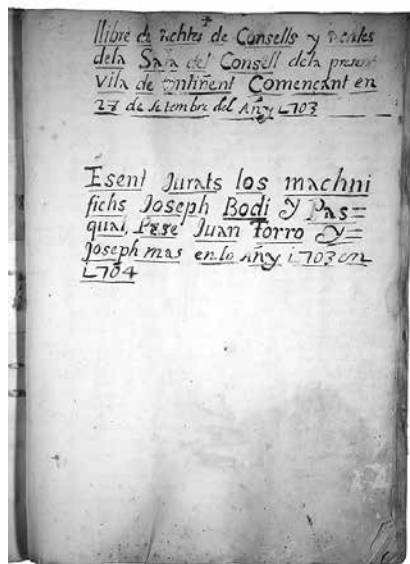 llibre de Achtes de Consells y
dela Sala del Consell dela present
Vila de Ontiñent Comencant en
27 de setembre del Añy 1703
Esent Jurats los machni
fichs Joseph Bodi Y Pas=
qual Juan Torro Y=
Joseph mas en lo Añy 1703 en
1704